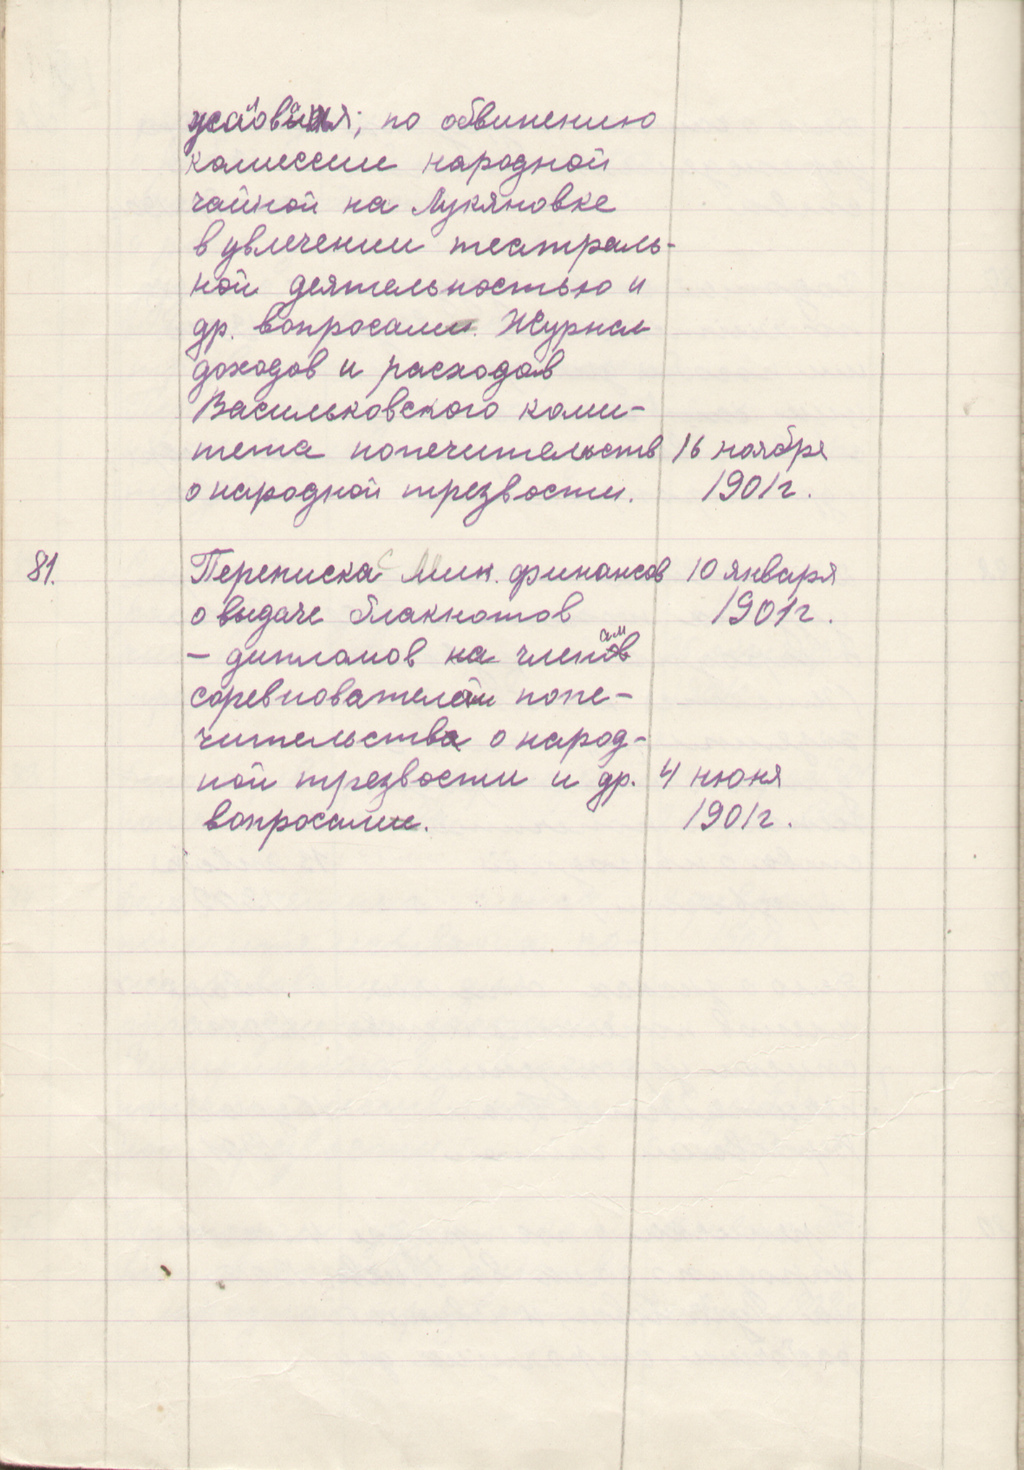 условия; по обвинению
комиссии народной
чайной на Лукяновке
в увлечении театраль-
ной деятельностью и
др. вопросами. Журнал
доходов и расходов
Васильковского коми-
тета попечительств 16 ноября
о народной трезвости. 1901г.
81. Переписка с Мин. финансов 10 января
о выдаче блакнотов 1901г.
- дипломов на членов
соревнователей попе-
чительства о народ-
ной трезвости и др. 4 июня
вопросами. 1901г.